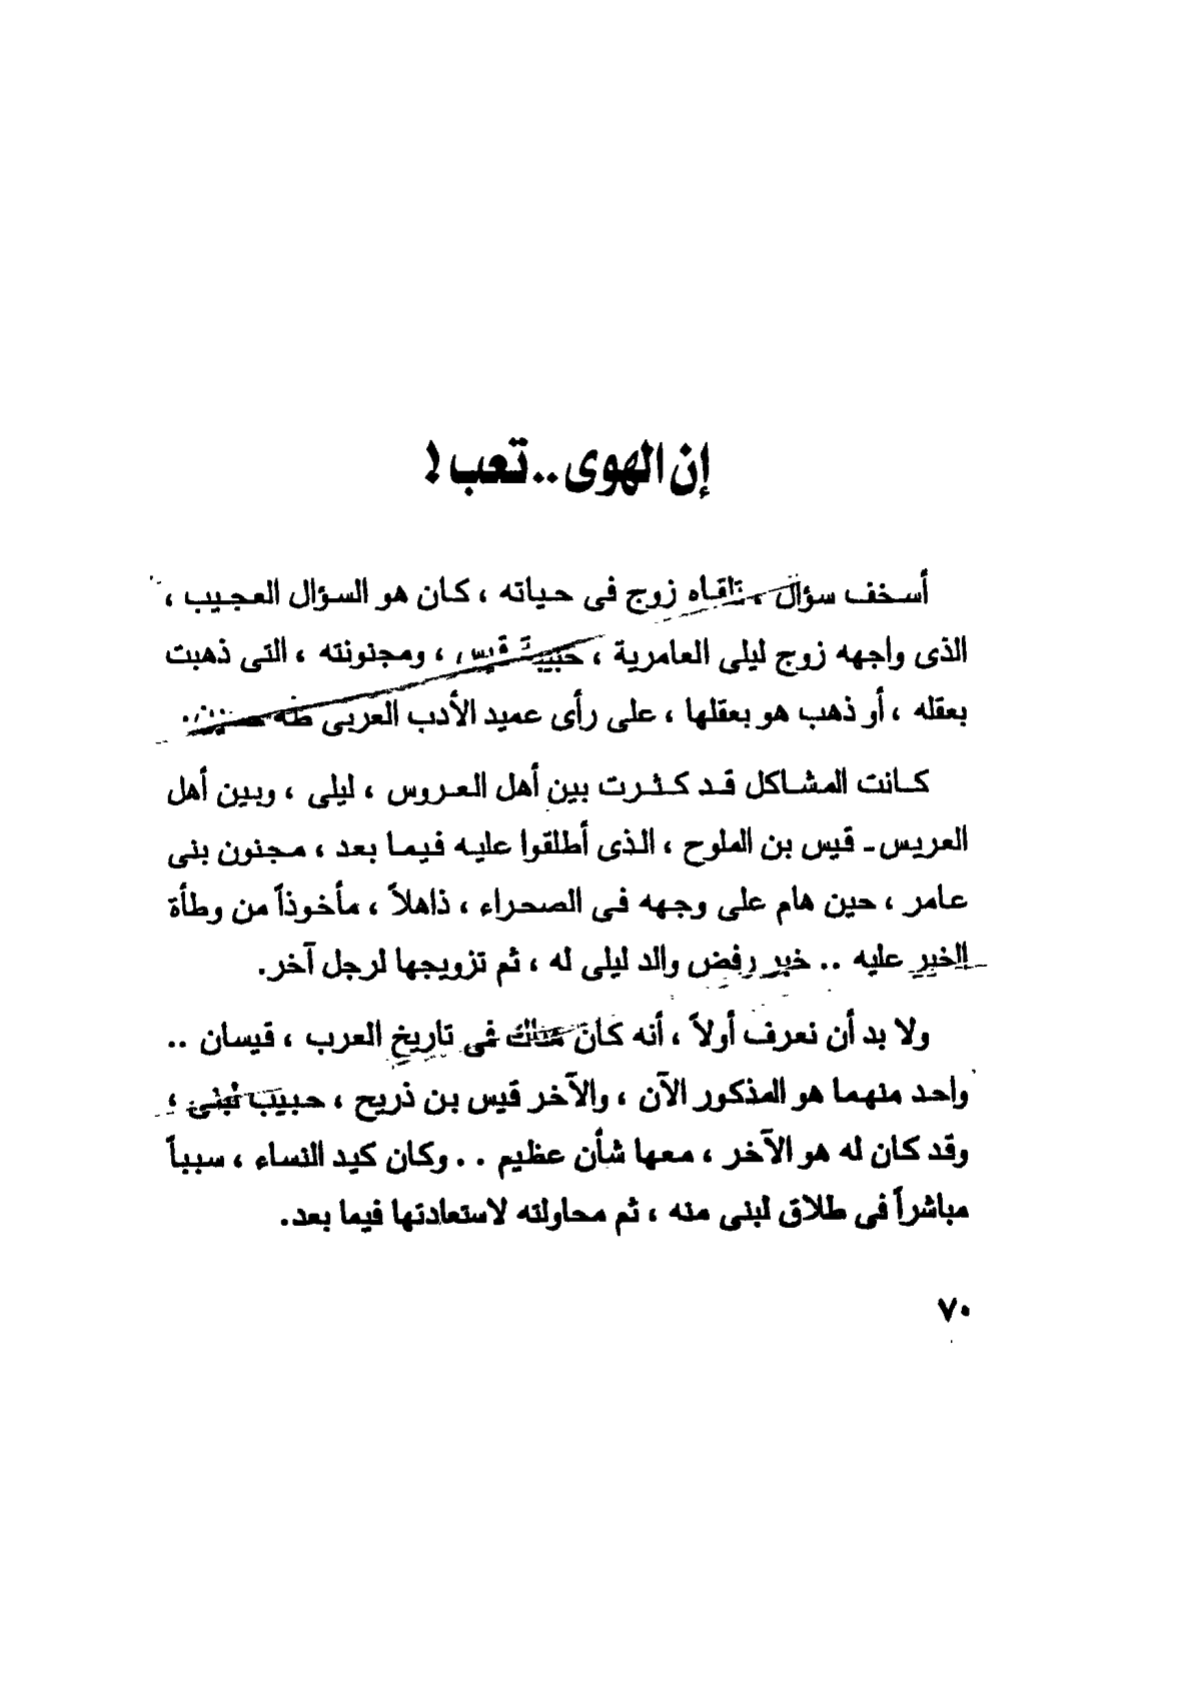 إن الهوى .. تعب !
أسخف سؤال ، تلقاه زوج فى حياته ، كان هو السؤال العجيب ،
الذى واجهه زوج ليلى العامرية ، حبيبة قيس ، ومجنونته ، التى ذهبت
بعقله ، أو ذهب هو بعقلها ، على رأى عميد الأدب العربى طه حسين.
كانت المشاكل قد كثرت بين أهل العروس ، ليلى ، وبين أهل
العريس - قيس بن الملوح ، الذى أطلقوا عليه فيما بعد ، مجنون بنى
عامر ، حين هام على وجهه فى الصحراء ، ذاهلاً ، مأخوذاً من وطأة
الخبر عليه .. خبر رفض والد ليلى له ، ثم تزويجها لرجل آخر.
ولا بد أن نعرف أولاً ، أنه كان هناك فى تاريخ العرب ، قيسان ..
واحد منهما هو المذكور الآن ، والآخر قيس بن ذريح ، حبيب لبنى ،
وقد كان له هو الآخر ، معها شأن عظيم .. وكان كيد النساء ، سبباً
مباشراً فى طلاق لبنى منه ، ثم محاولته لاستعادتها فيما بعد.
٧٠